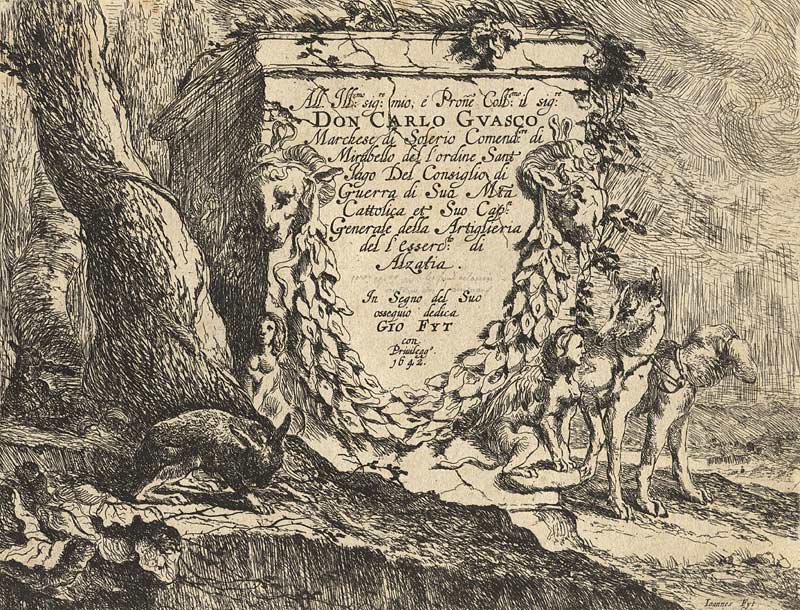 All. Ill.mo sig.re mio, e Prone Coll.mo il sig.re
DON CARLO GVASCO
Marchese di Solerio Comend.re di
Mirabello del l'ordine Sant
Jago Del Consiglio di
Guerra di Sua Mta
Cattolica et Suo Cap.
Generale della Artiglieria
del l'esserc.to di
Alzatia.
In Segno del Suo
ossequio dedica
GIO FYT
con
Priuilegg.
1642.
Ioannes Fyt